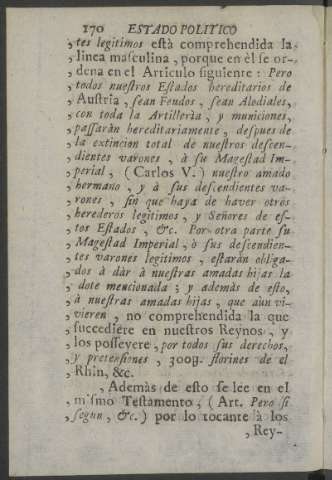 170 ESTADO POLITICO
,tes legitimos està comprehendida la
,linea masculina, porque en èl se or-
,dena en el Articulo siguiente: Pero
,todos nuestros Estados hereditarios de
,Austria, sean Feudos, sean Alodiales,
,con toda la Artillerìa, y municiones,
,passaràn hereditariamente, despues de
,la extincion total de nuestros descen-
,dientes varones, à su Magestad Im-
,perial, (Carlos V.) nuestro amado
,hermano, y à sus descendientes va-
,rones, sin que haya de haver otros
,herederos legitimos, y Señores de es-
,tos Estados, &c. Por otra parte su
,Magestad Imperial, ò sus descendien-
,tes varones legitimos, estaràn obliga-
,dos à dàr à nuestras amadas hijas la
,dote mencionada; y ademàs de esto,
,à nuestras amadas hijas, que aùn vi-
,vieren, no comprehendida la que
,succediére en nuestros Reynos, y
,los posseyere, por todos sus derechos,
,y pretensiones, 300g. florines de el
,Rhin, &c.
,Ademàs de esto se lee en el
,mismo Testamento, (Art. Pero si
,segun, &c.) por lo tocante à los
,Rey-